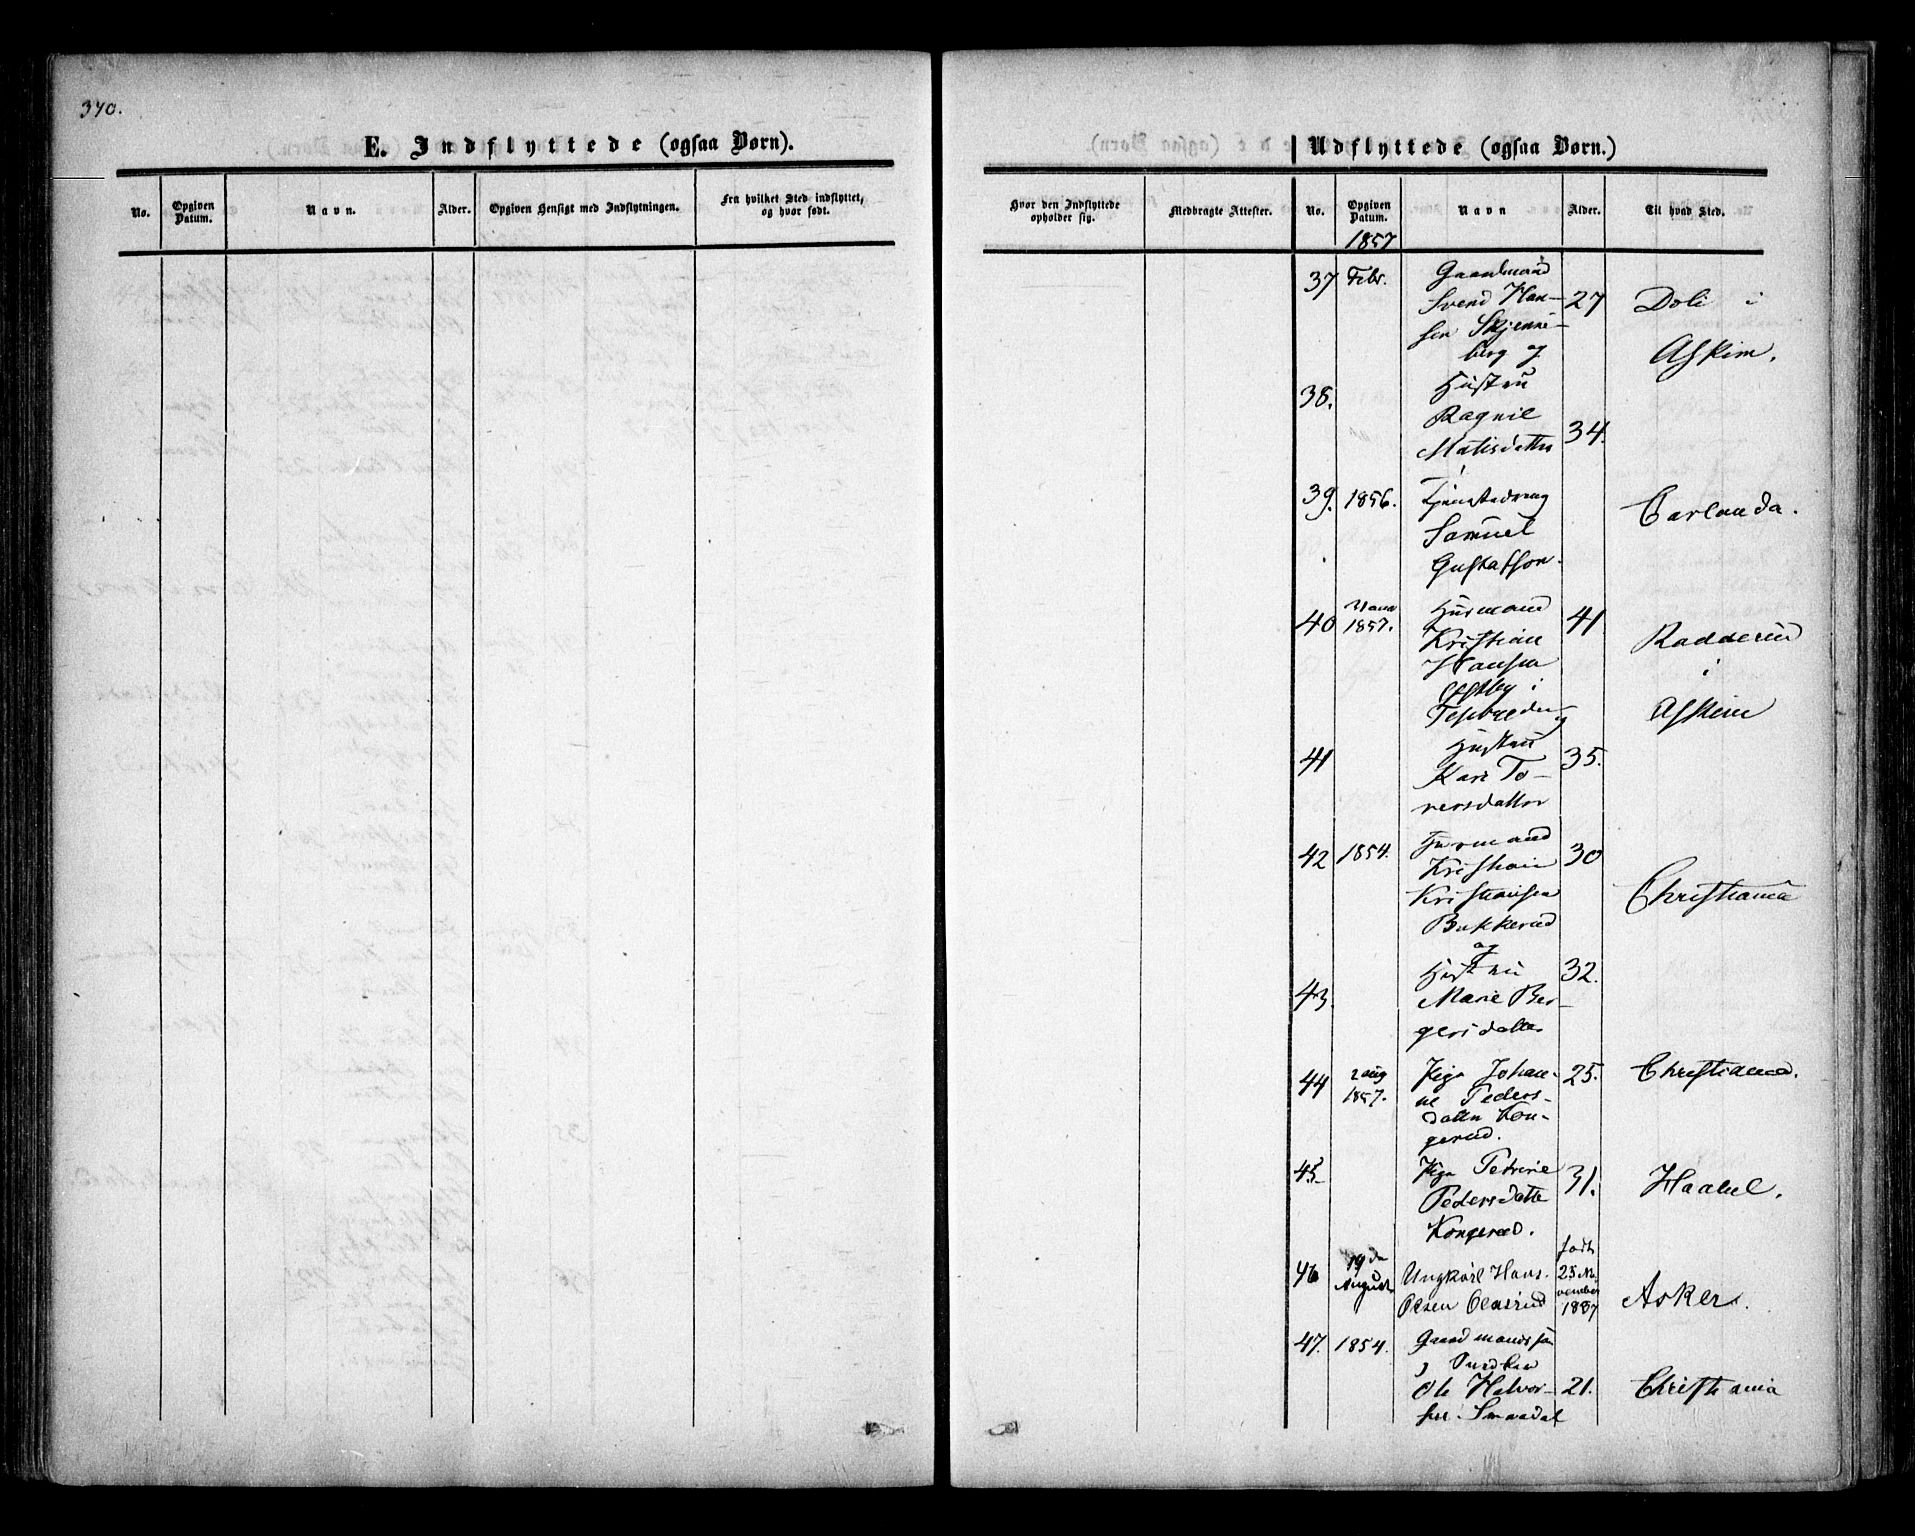 340.
E. Indflyttede (ogsaa Børn).
No.
Opgiven Datum.
Navn.
Alder.
Opgiven Hensigt med Indflytningen.
Fra hvilket Sted indflyttet, og hvor født.
Udflyttede (ogsaa Børn.)
Hvor den Indflyttede opholder sig.
Medbragte Attester.
No.
Opgiven Datum.
Navn
Alder.
Til hvad Sted.
1857
37 Febr. Gaardmand
Svend Han- 27 Doli i
sen Skjenne-
berg og Askim.
38. Hustru
Ragnil
Matisdatter 34.
39. 1856. Tjenestedreng Carlanda.
Samuel
Gustafson.
40 1857. Husmand 41
Kristian Radderud
Hansen i
Østby i
Askim
41 Hustru 35.
Kari To-
versdatter
42 1854. Husmand 30
Kristian
Kristiansen Christiania
Bukkerud
og
43. Hustru 32.
Marie Ber-
gersdatter
44 2 Aug 1857. Pige Johan- 25. Christiania.
ne Peders-
datter Kon-
gerud.
45 Pige Petrine
Pedersdatter 31. Haabel.
Kongerud.
46 19de August Ungkarl Hans født 25 November 1837
Olsen Asker.
47. 1854. Gaardmandssøn
Ole Halvor- 21. Christiania
sen Smaadal